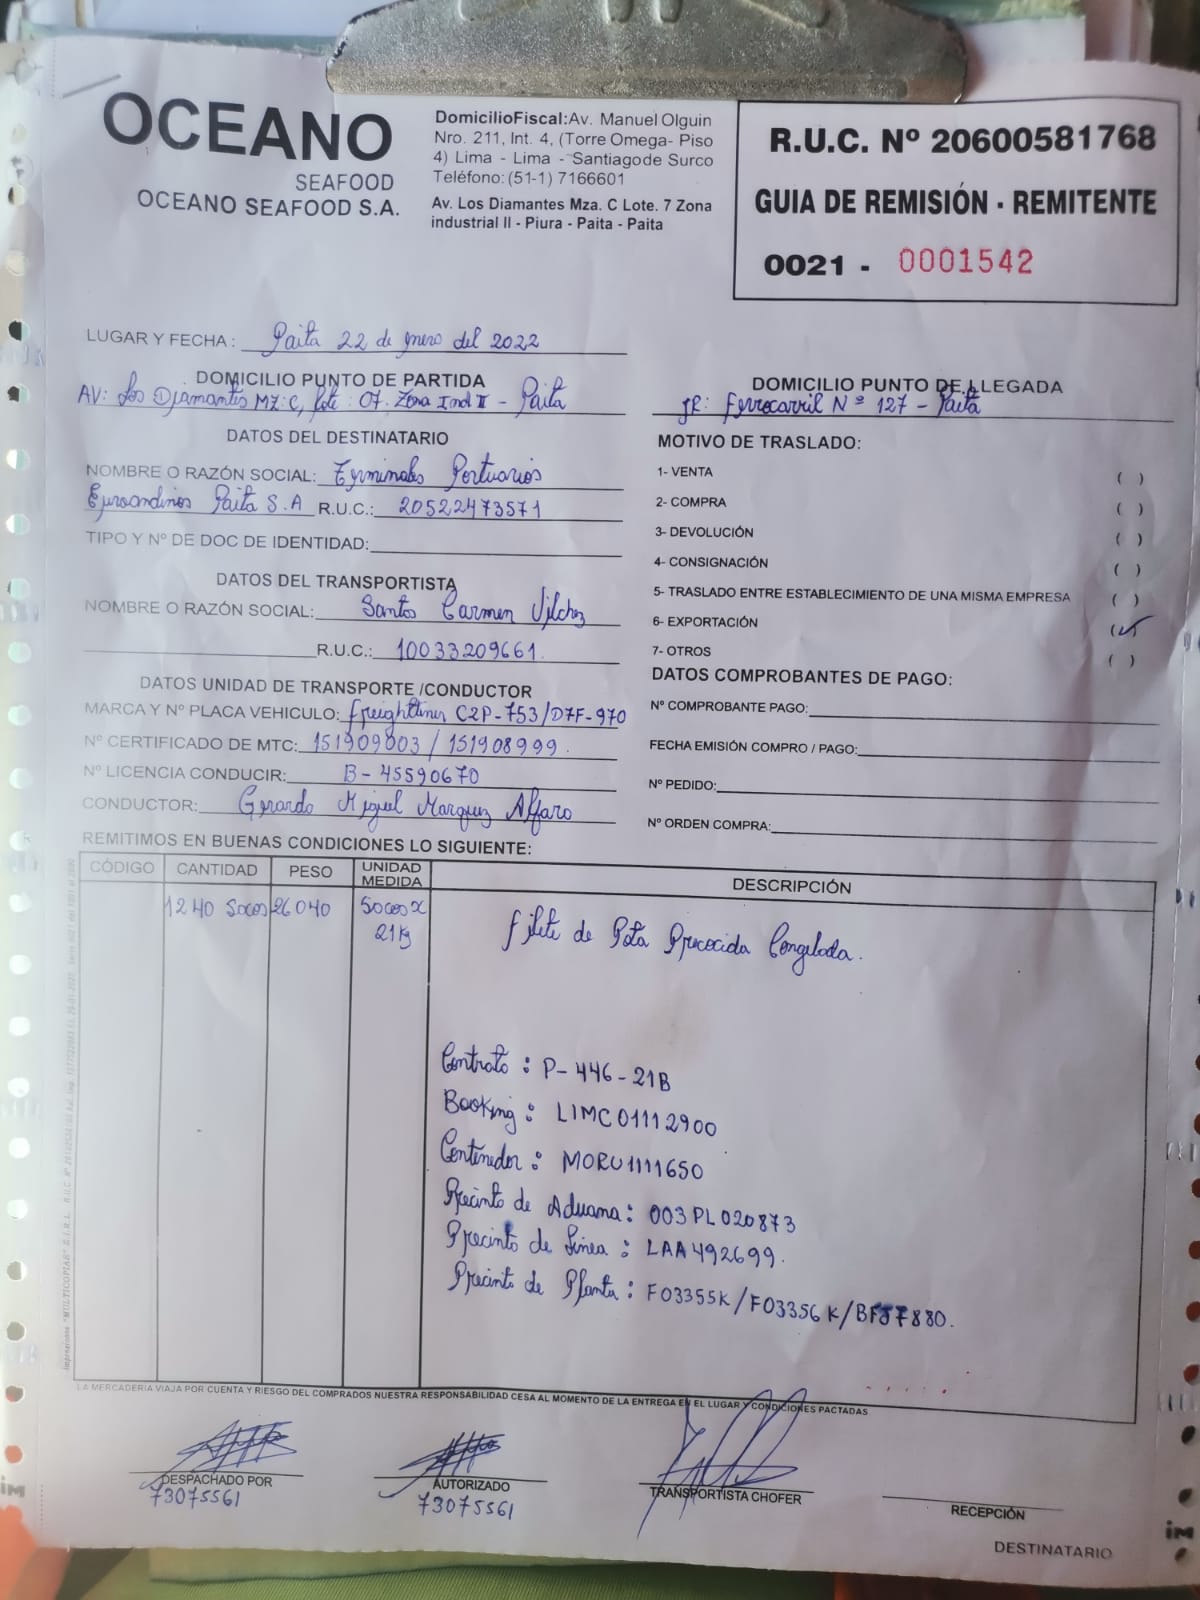 OCEANO
SEAFOOD
OCEANO SEAFOOD S.A.
DomicilioFiscal:Av. Manuel Olguin
Nro. 211, Int. 4, (Torre Omega- Piso
4) Lima - Lima - Santiagode Surco
Teléfono: (51-1) 7166601
Av. Los Diamantes Mza. C Lote. 7 Zona
industrial II - Piura - Paita - Paita
R.U.C. Nº 20600581768
GUIA DE REMISIÓN - REMITENTE
0021 - 0001542
LUGAR Y FECHA : Paita 22 de enero del 2022
DOMICILIO PUNTO DE PARTIDA
AV: Los Diamantes MZ: C, Lote: 07. Zona Ind II - Paita
DOMICILIO PUNTO DE LLEGADA
JR: Ferrocarril Nº 127 - Paita
DATOS DEL DESTINATARIO
NOMBRE O RAZÓN SOCIAL: Terminales Portuarios
Euroandinos Paita S.A R.U.C.: 20522473571
TIPO Y Nº DE DOC DE IDENTIDAD:
DATOS DEL TRANSPORTISTA
NOMBRE O RAZÓN SOCIAL: Santos Carmen Vilchez
R.U.C.: 10033209661.
DATOS UNIDAD DE TRANSPORTE /CONDUCTOR
MARCA Y Nº PLACA VEHICULO: Freightliner C2P-753/D7F-970
Nº CERTIFICADO DE MTC: 151909003 / 151908999.
Nº LICENCIA CONDUCIR: B-45590670
CONDUCTOR: Gerardo Miguel Marquez Alfaro
MOTIVO DE TRASLADO:
1- VENTA ( )
2- COMPRA ( )
3- DEVOLUCIÓN ( )
4- CONSIGNACIÓN ( )
5- TRASLADO ENTRE ESTABLECIMIENTO DE UNA MISMA EMPRESA ( )
6- EXPORTACIÓN (✓)
7- OTROS ( )
DATOS COMPROBANTES DE PAGO:
Nº COMPROBANTE PAGO:
FECHA EMISIÓN COMPRO / PAGO:
Nº PEDIDO:
Nº ORDEN COMPRA:
REMITIMOS EN BUENAS CONDICIONES LO SIGUIENTE:
CÓDIGO CANTIDAD PESO UNIDAD MEDIDA DESCRIPCIÓN
1240 Sacos 26040 Sacos x
21Kg
Filete de Pota Precocida Congelada.
Contrato : P-446-21B
Booking : LIMC01112900
Contenedor : MORU1111650
Precinto de Aduana : 003PL020873
Precinto de Linea : LAA492699.
Precinto de Planta : F03355K/F03356K/BF57880.
LA MERCADERIA VIAJA POR CUENTA Y RIESGO DEL COMPRADOS NUESTRA RESPONSABILIDAD CESA AL MOMENTO DE LA ENTREGA EN EL LUGAR Y CONDICIONES PACTADAS
DESPACHADO POR
73075561
AUTORIZADO
73075561
TRANSPORTISTA CHOFER
RECEPCIÓN
DESTINATARIO